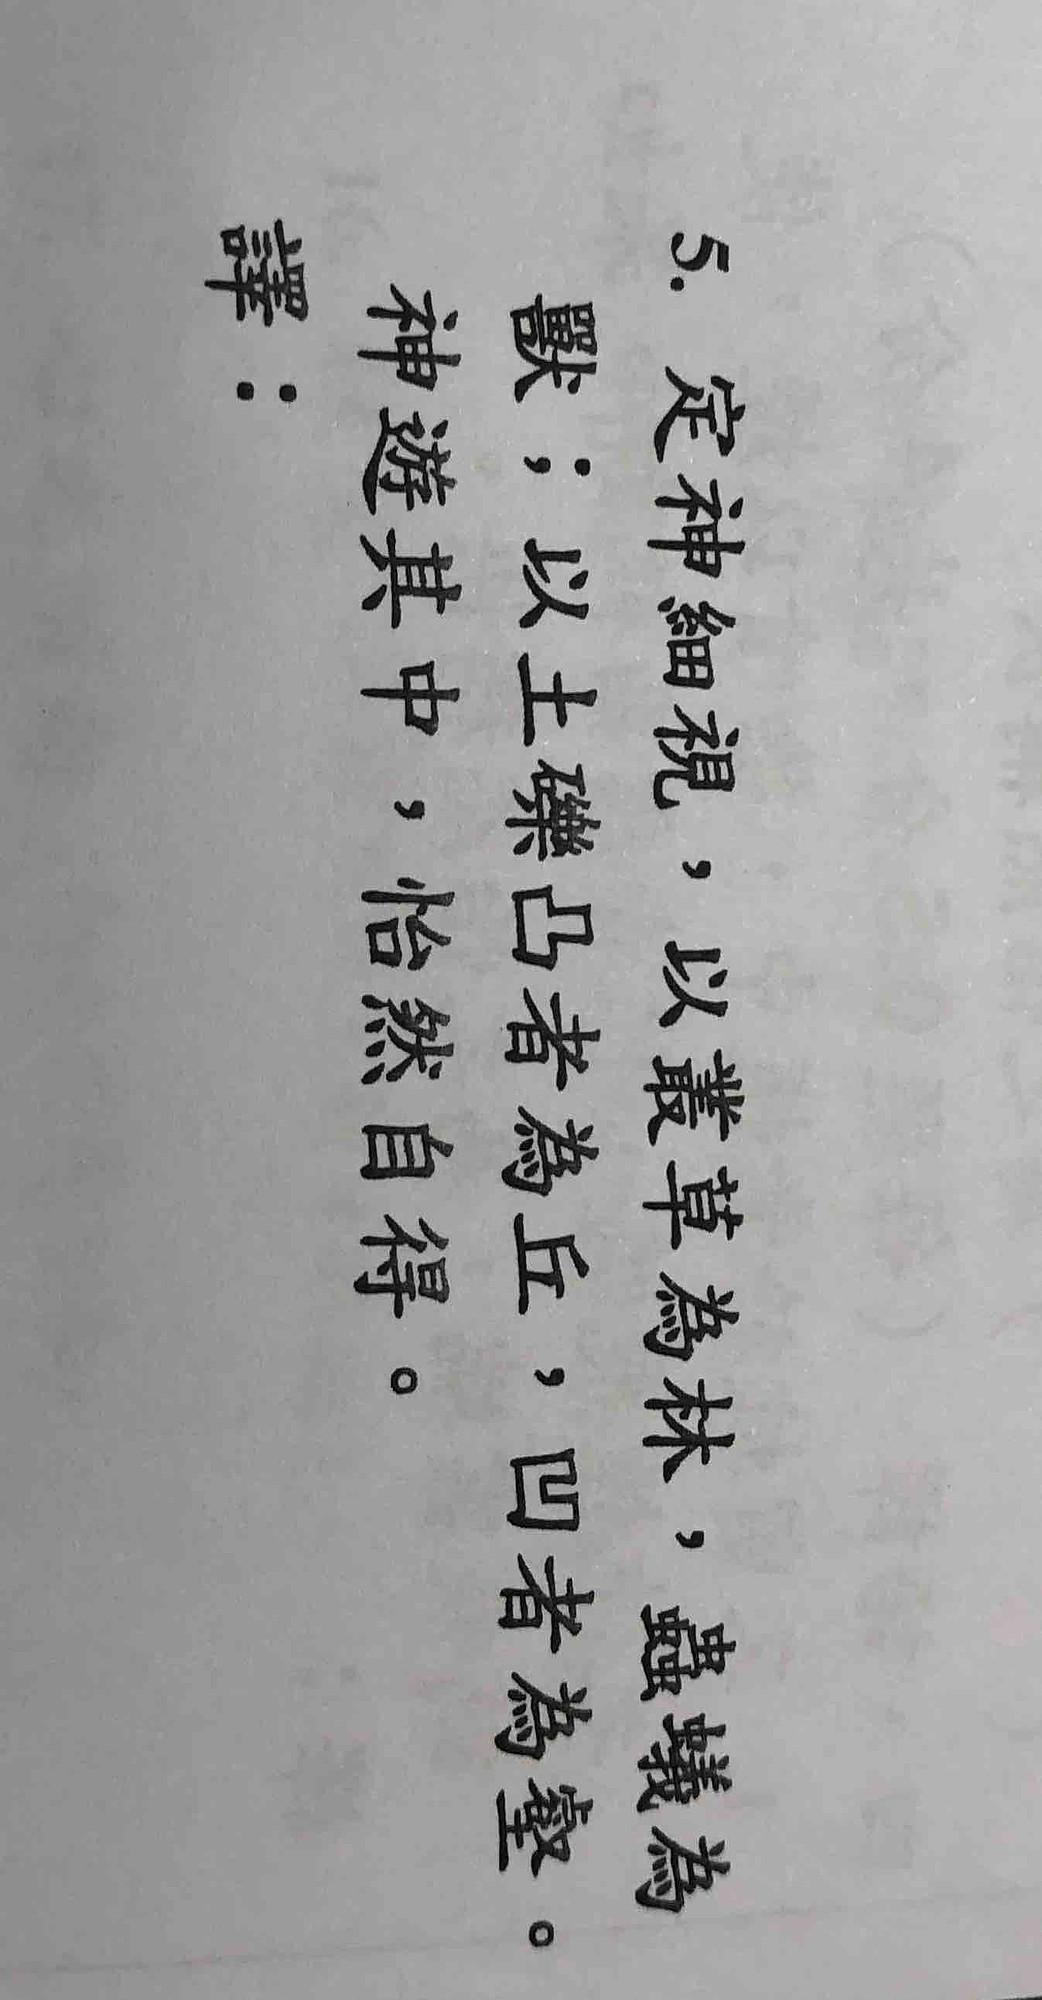 5. 定神細視，以叢草為林，蟲蟻為
獸；以土礫凸者為丘，凹者為壑。
神遊其中，怡然自得。
譯：